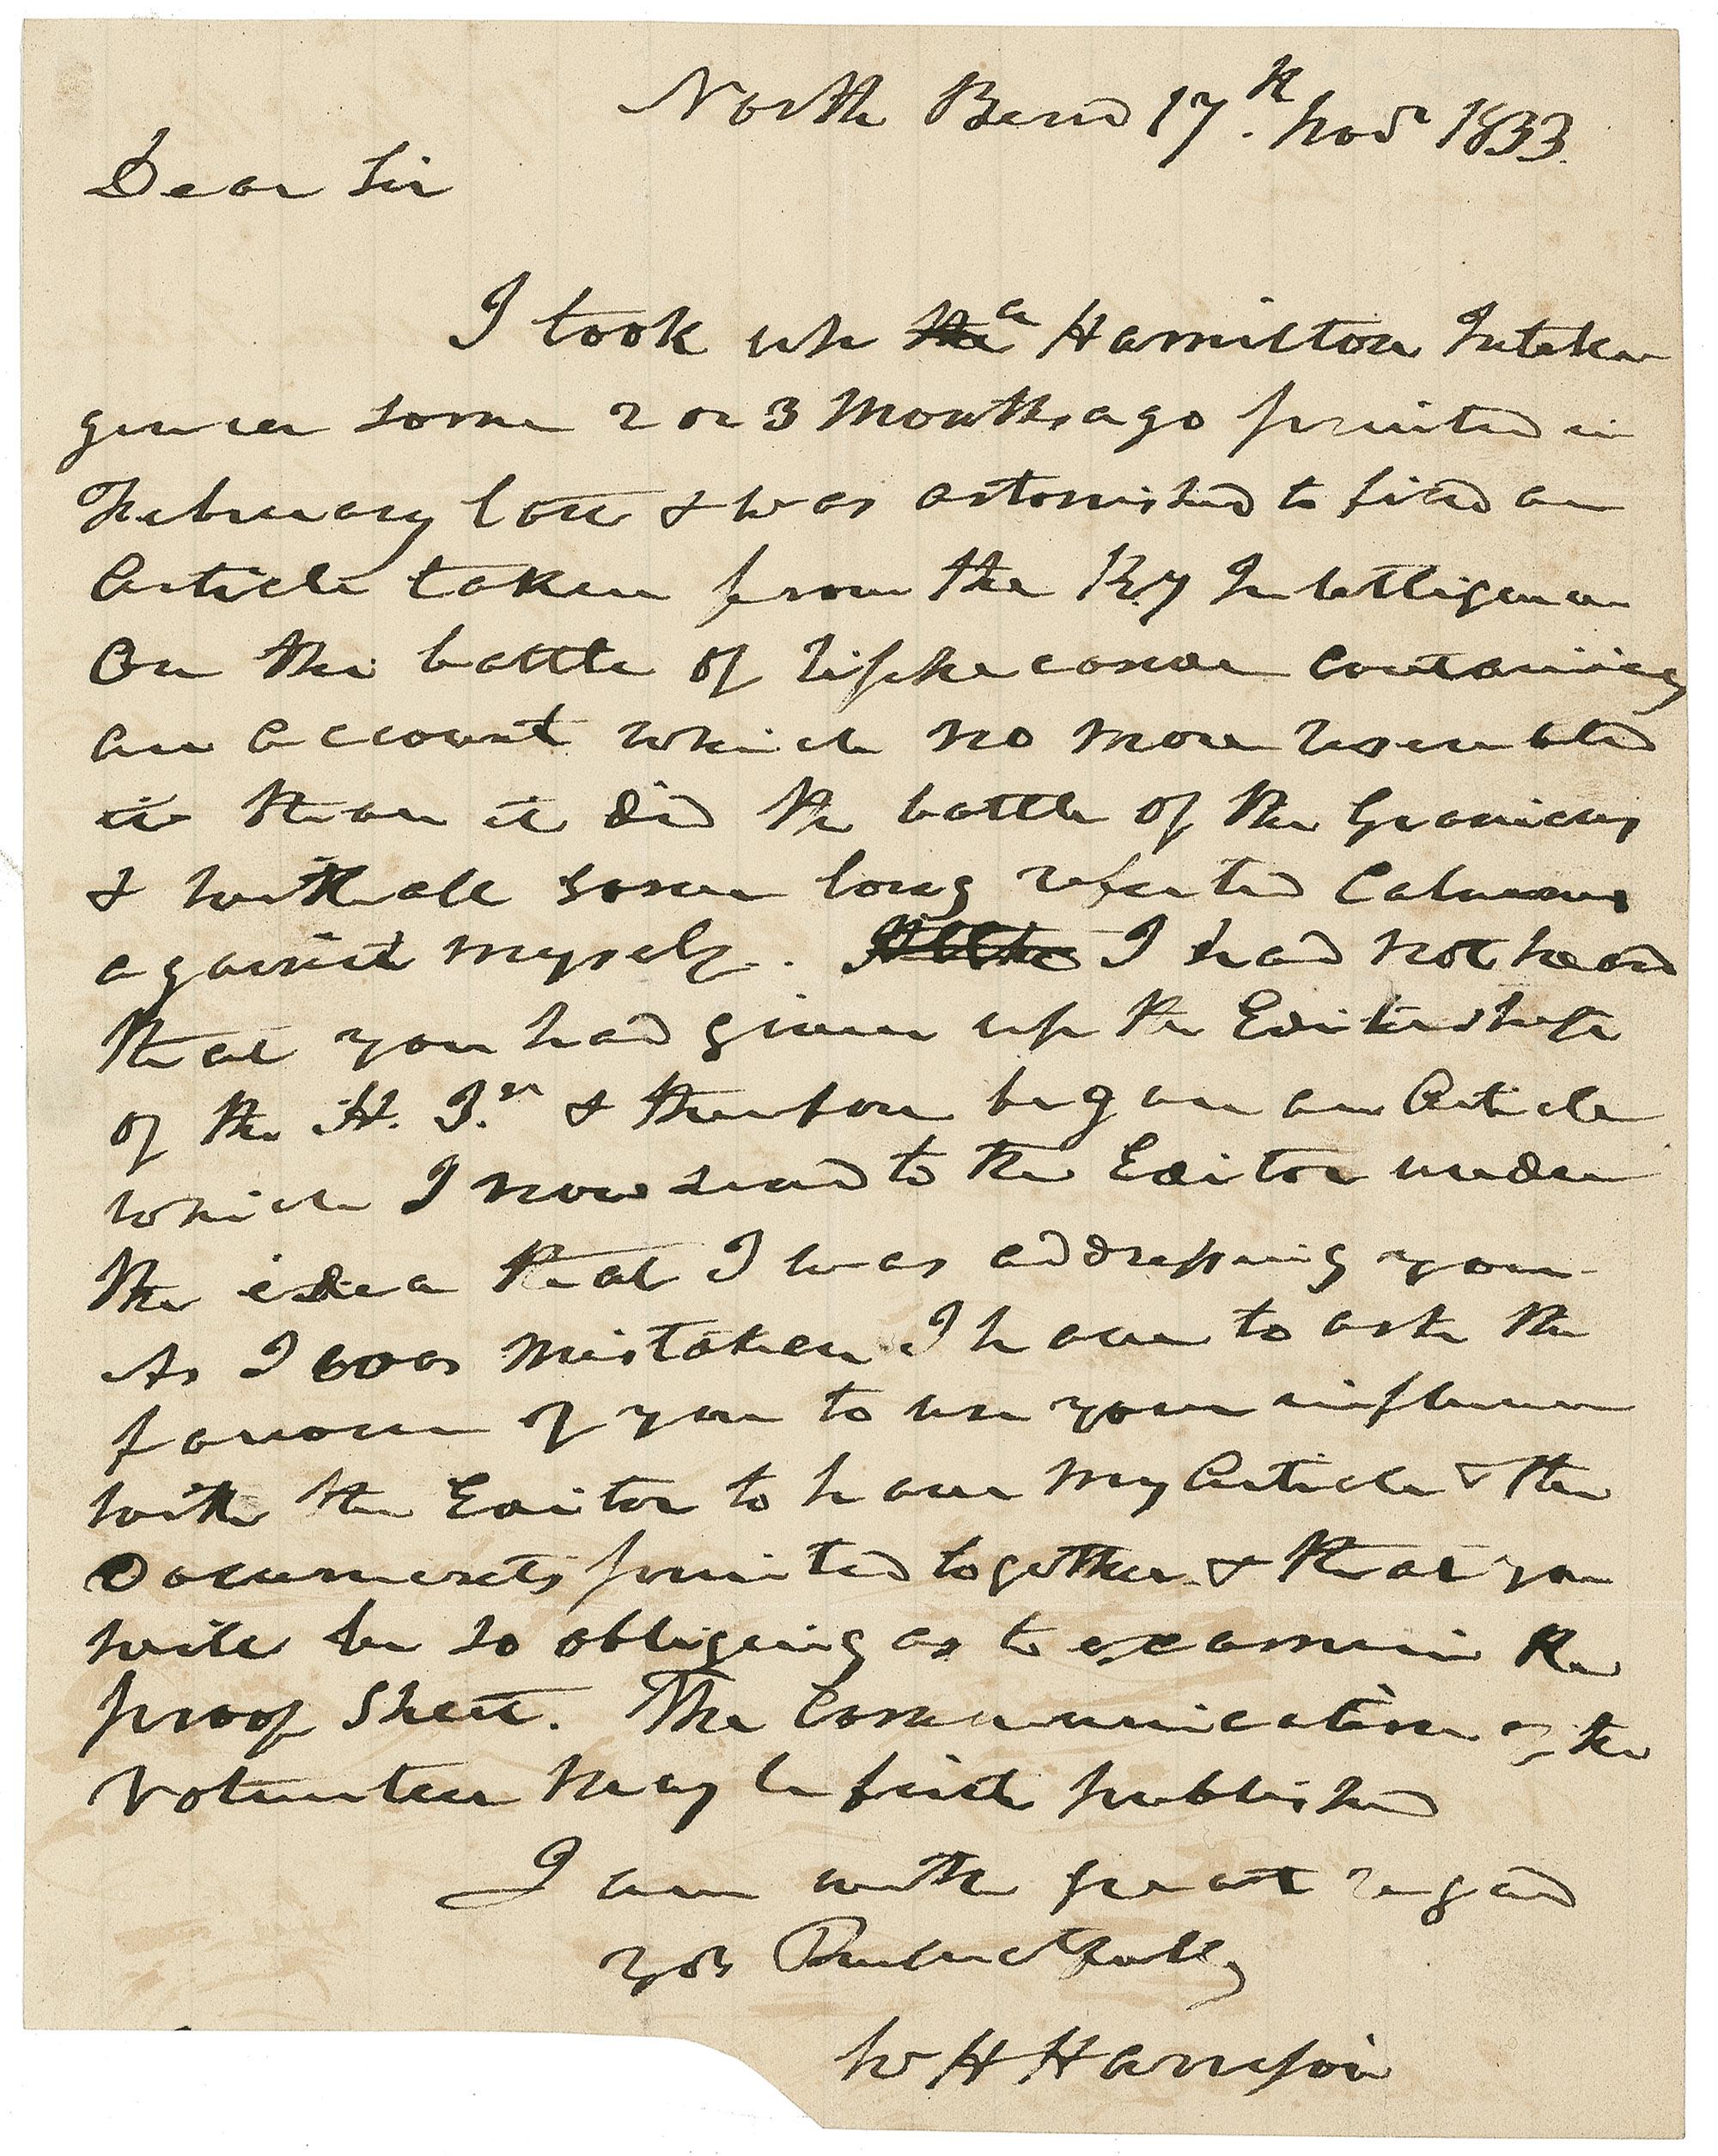 North Bend 17.th Novr 1833.
Dear Sir
I took up the a Hamilton Intelli
gencer some 2 or 3 Months ago printed in
February last & was astonished to find an
Article taken from the Ky Intelligencer
On the battle of Tippecanoe containing
an account which no more resembled
it than it did the battle of the Granicus
& with all some long refuted Calumnies
against myself. I had not heard
that you had given up the Editorship
of the H. I.er & therefore began an Article
which I now send to the Editor under
the idea that I was addressing you
As I was mistaken I have to ask the
favour of you to use your influence
with the Editor to have my Article & the
Documents printed together & that you
will be so obliging as to examine the
proof Sheet. The Communication of the
Volunteer may be first published
I am with great regard
yos Respectfully
W H Harrison